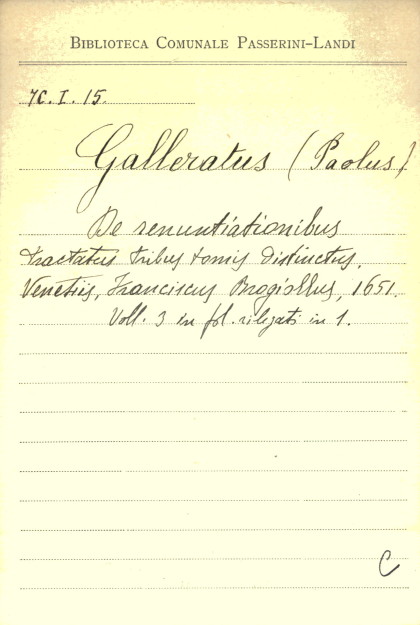 BIBLIOTECA COMUNALE PASSERINI-LANDI
7C. I. 15.
Galleratus (Paolus)
De renuntiationibus
tractatus tribus tomis distinctus.
Venetiis, Franciscus Brogiollus, 1651.
Voll. 3 in fol. rilegati in 1.
C